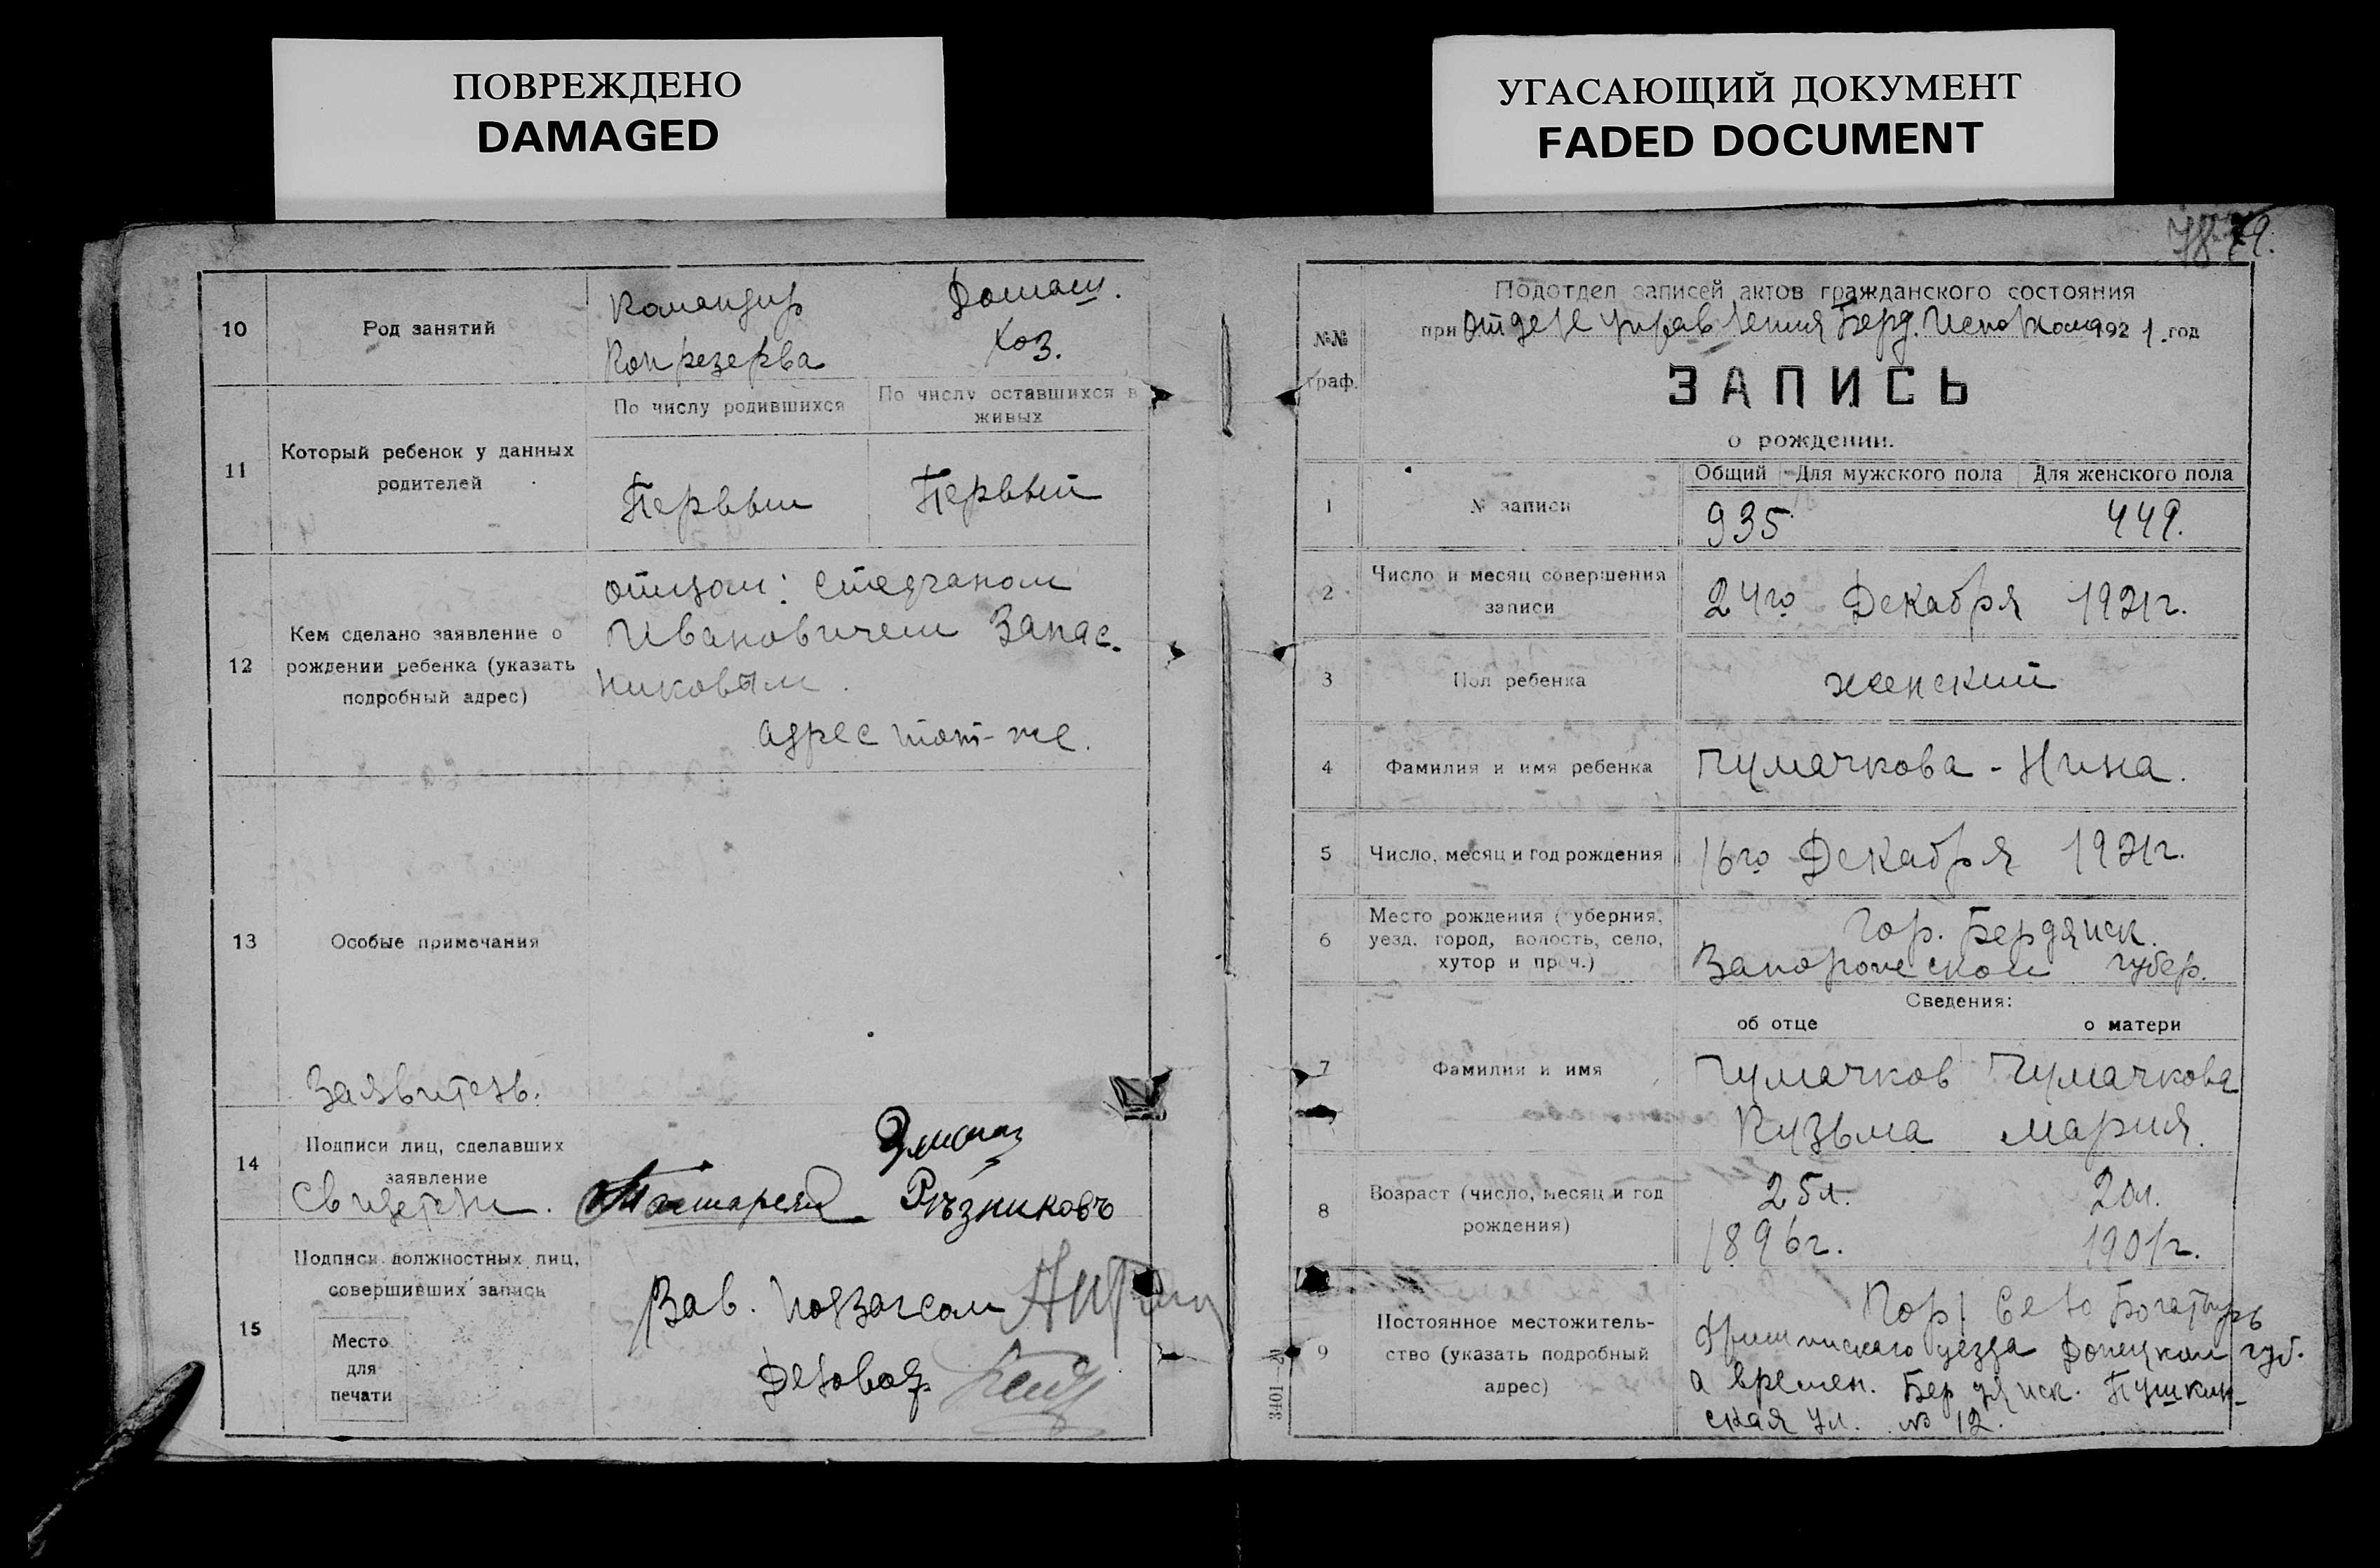 ПОВРЕЖДЕНО
DAMAGED
УГАСАЮЩИЙ ДОКУМЕНТ
FADED DOCUMENT
10
Род занятий
Командир
Конрезерва
Домаш.
хоз.
11
Который ребенок у данных
родителей
По числу родившихся
По числу оставшихся в
живых
Первый
Первый
12
Кем сделано заявление о
рождении ребенка (указать
подробный адрес)
отцом: Стефаном
Ивановичем Запас-
никовым.
адрес тот-же.
13
Особые примечания
Заявитель.
14
Подписи лиц, сделавших
заявление
Свидетели.
Резниковъ
15
Подписи должностных лиц,
совершивших запись
Место
для
печати
Зав. подзагсом
Деловод
79.
№№
граф.
Подотдел записей актов гражданского состояния
при Отделе Управления Берд. Исполкома 1921 год
ЗАПИСЬ
о рождении.
1
№ записи
Общий
Для мужского пола
Для женского пола
935
449.
2
Число и месяц совершения
записи
24го Декабря 1921г.
3
Пол ребенка
женский
4
Фамилия и имя ребенка
Чумачкова - Нина.
5
Число, месяц и год рождения
16го Декабря 1921г.
6
Место рождения (губерния,
уезд, город, волость, село,
хутор и проч.)
Гор. Бердянск.
Запорожской губер.
Сведения:
об отце
о матери
7
Фамилия и имя
Чумачков
Кузьма
Чумачкова
Мария.
8
Возраст (число, месяц и год
рождения)
25л.
1896г.
20л.
1901г.
9
Постоянное местожитель-
ство (указать подробный
адрес)
Село Богатырь
Гришинскаго уезда Донецкой губ.
а времен. Бердянск. Пушкин-
ская ул. № 12.